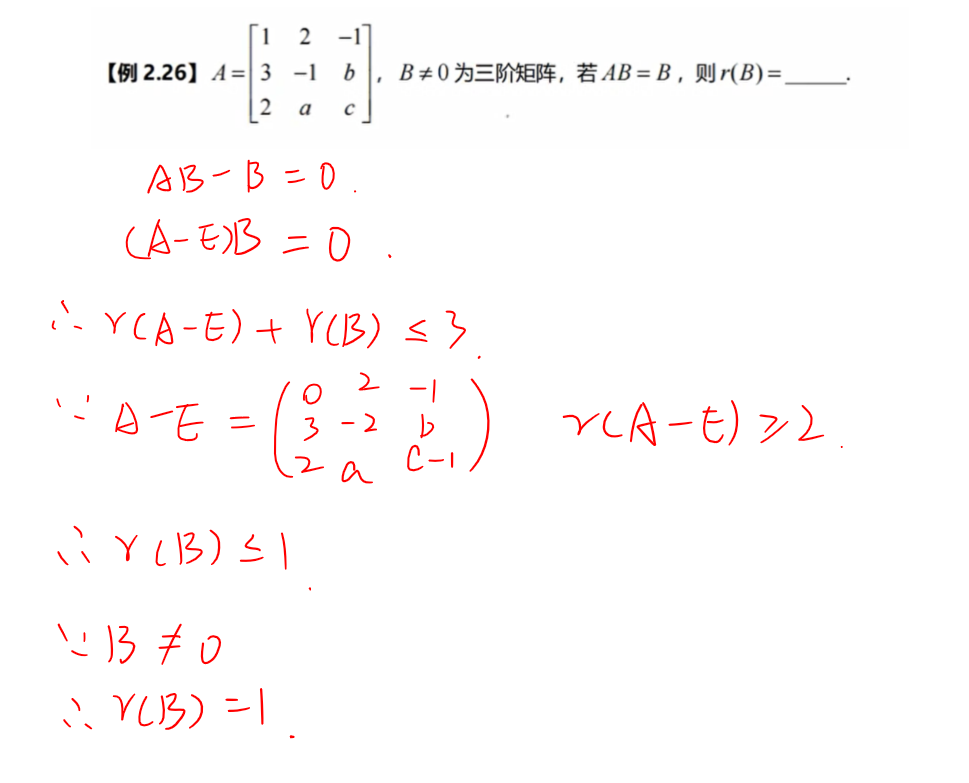 【例 2.26】 A = [1 2 −1; 3 −1 b; 2 a c]， B ≠ 0 为三阶矩阵，若 AB = B，则 r(B) = ______.
AB − B = 0.
(A−E)B = 0.
∴ r(A−E) + r(B) ≤ 3.
∵ A−E = (0 2 −1; 3 −2 b; 2 a c−1) r(A−E) ≥ 2.
∴ r(B) ≤ 1.
∵ B ≠ 0
∴ r(B) = 1.